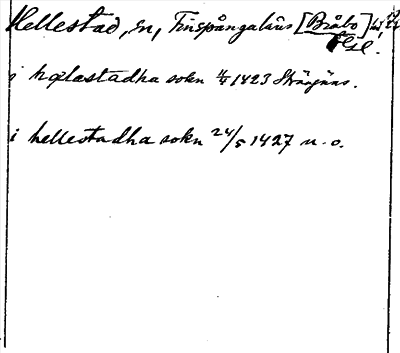 Hellestad, sn, Finspångaläns [Bråbo] hd,
Ögl.
i hælastadha sokn 4/5 1423 Strängnäs.
i hellestadha sokn 24/5 1427 u. o.